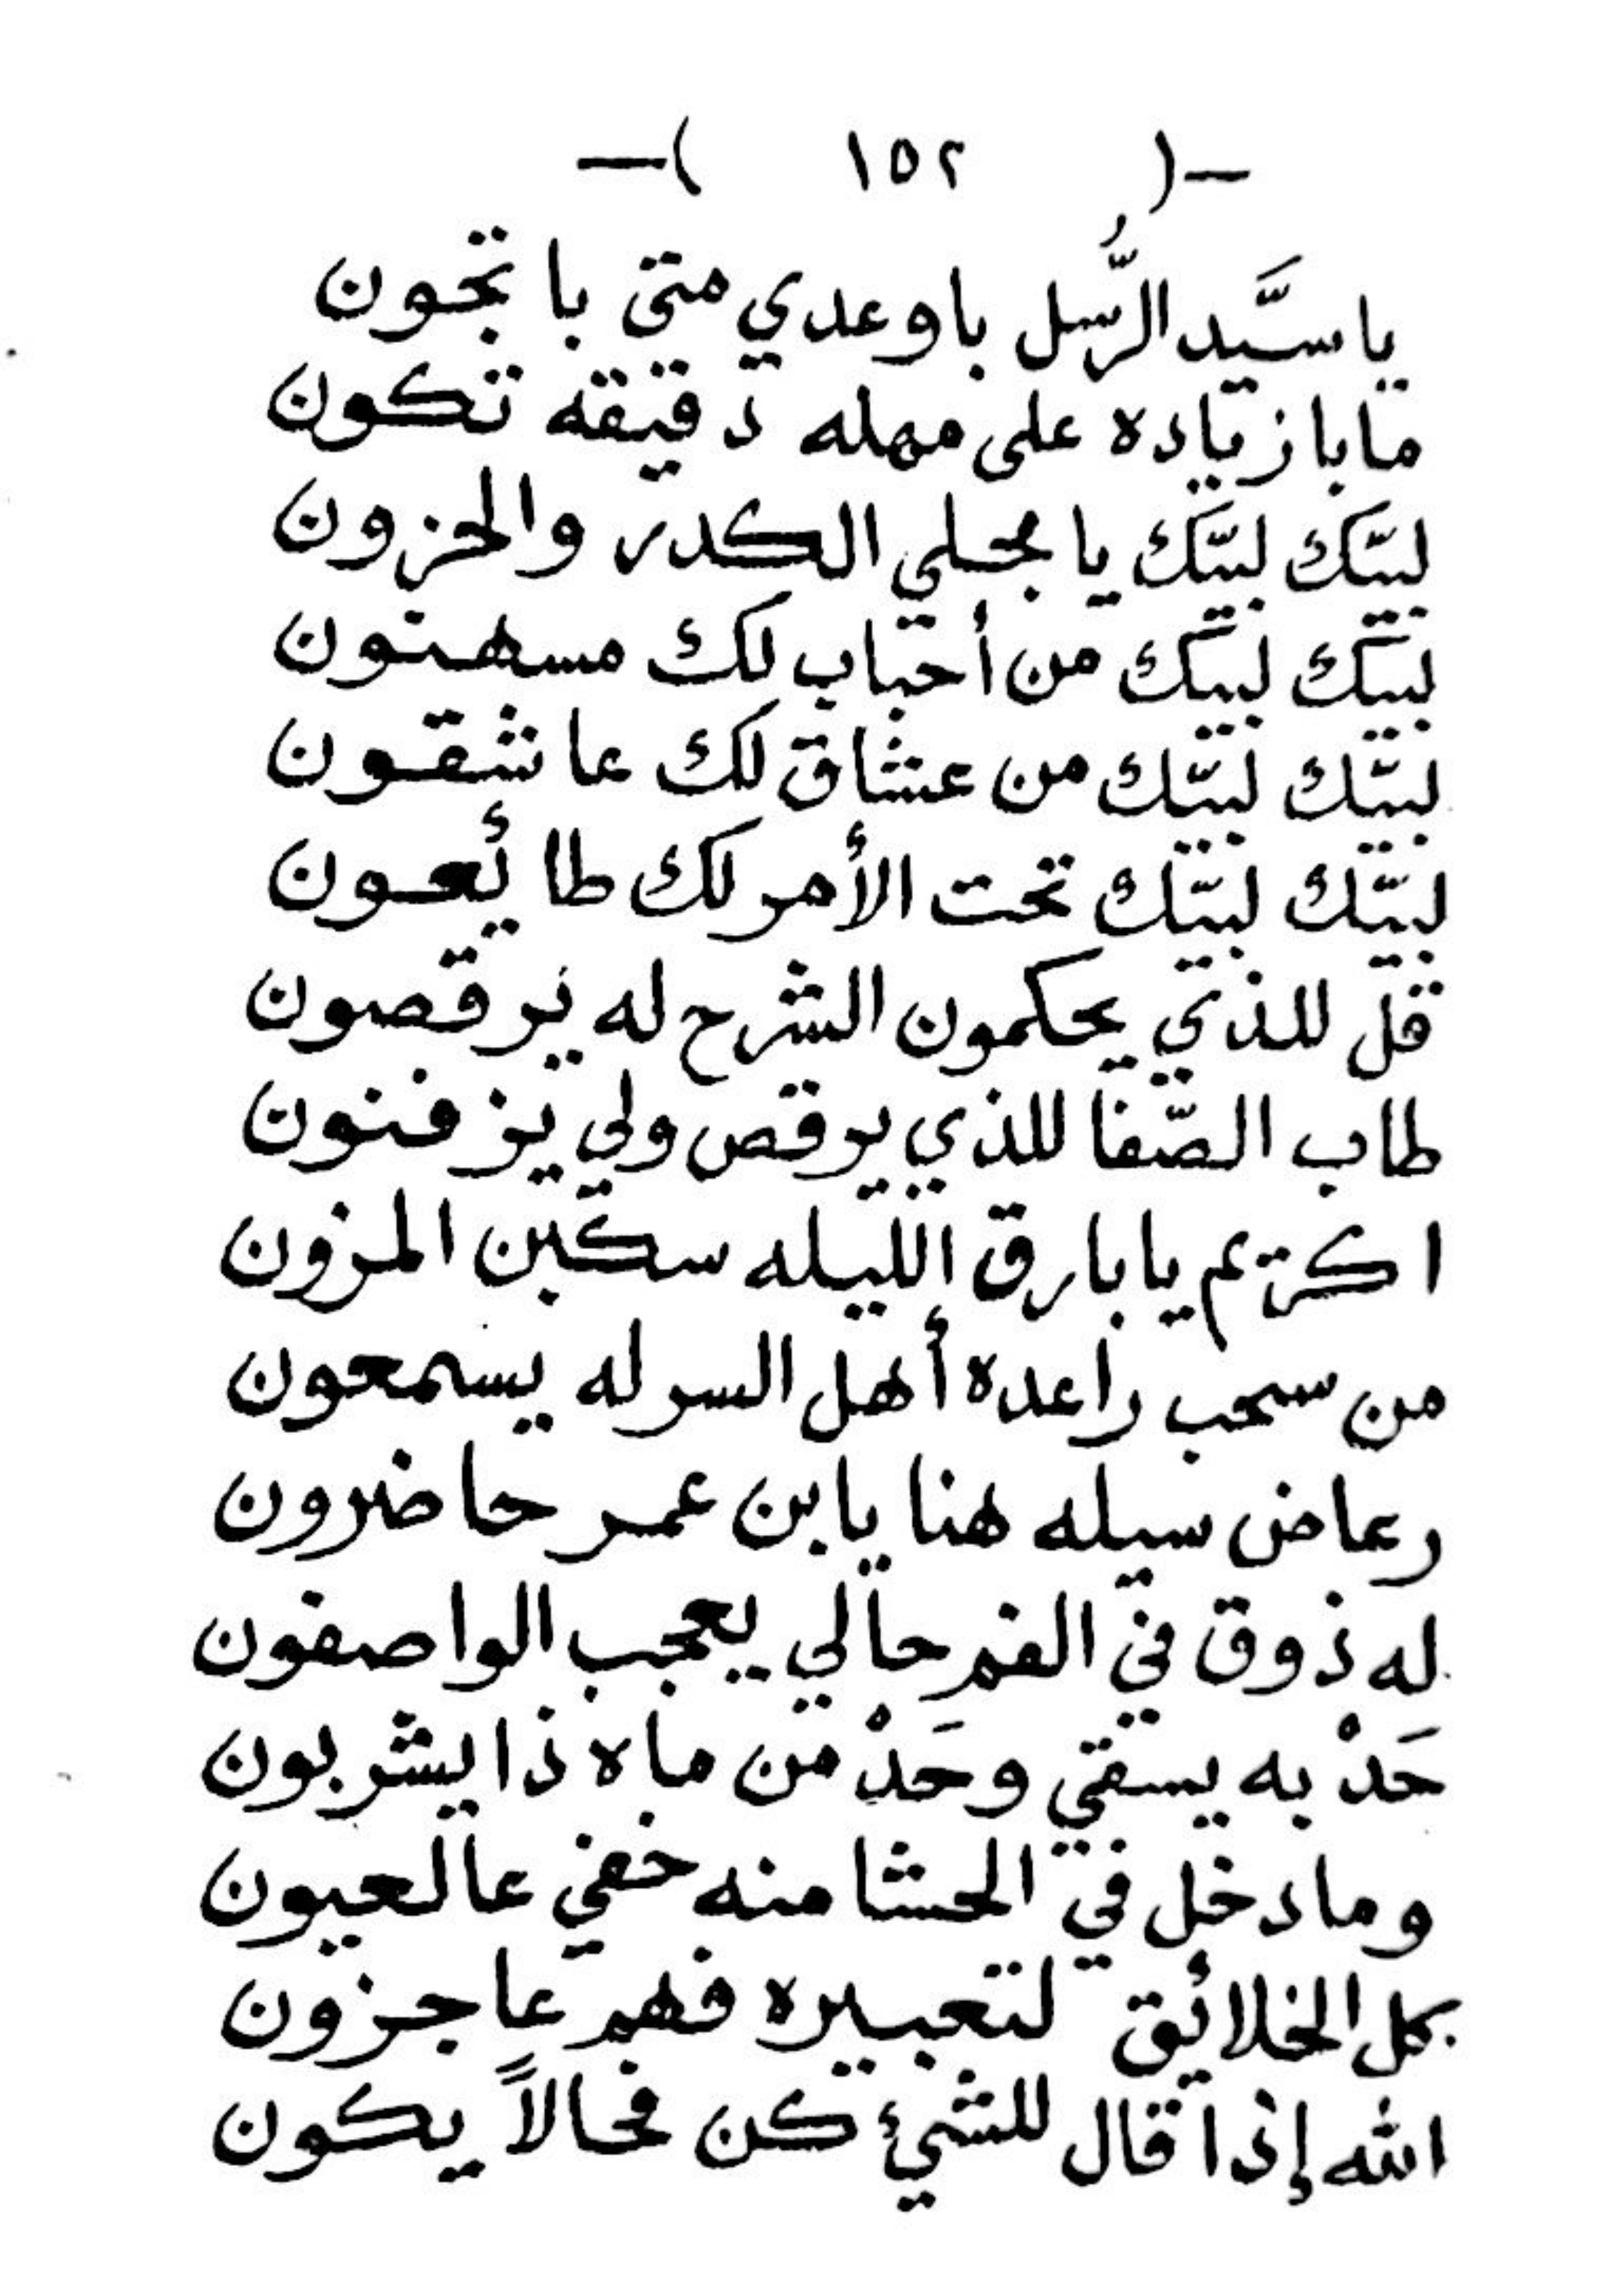 -( ١٥٢ )-
يا سيَّد الرُّسل باوعدي متى با تجون
مابا زياده على مهله دقيقه تكون
لبيّك لبيّك يا مجلي الكدر والحزون
لبيّك لبيّك من أحباب لك مسهنون
لبيّك لبيّك من عشاق لك عاشقون
لبيّك لبيّك تحت الأمر لك طائعون
قل للذي يحكمون الشرح له يرقصون
طاب الصّفا للذي يرقص ولي يزفنون
اكريم يا بارق الليله سكين المزون
من سحب راعده أهل السر له يسمعون
رعاض سيله هنا يا بن عمر حاضرون
له ذوق في الفم حالي يعجب الواصفون
حَدْ به يسقي وحَدْ من ماه ذا يشربون
وما دخل في الحشا منه خفي عالعيون
كل الخلائق لتعبيره فهم عاجزون
الله إذا قال للشيء كن فحالاً يكون